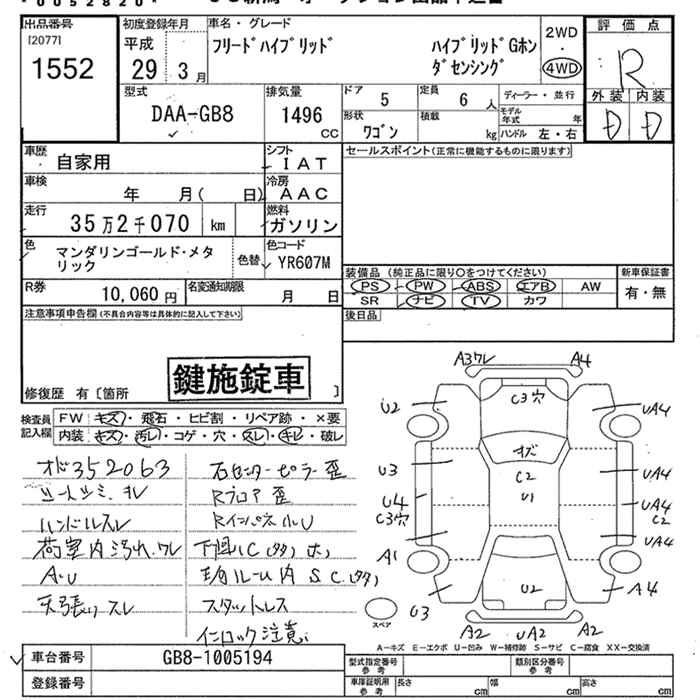 出品番号
[2077]
1552
初度登録年月
平成
29 3月
車名・グレード
フリードハイブリッド
ハイブリッドGホン
ダセンシング
2WD
・
4WD
評価点
R
外装 内装
D D
型式
DAA-GB8
排気量
1496
CC
ドア 5
定員 6 人
形状 ワゴン
積載 kg
ディーラー・並行
モデル年式 年
ハンドル 左・右
車歴 自家用
シフト IAT
車検 年 月( 日)
冷房 AAC
走行 35万2千070 km
燃料 ガソリン
色
マンダリンゴールド・メタ
リック
色替
色コード YR607M
R券 10,060円
名変通知期限 月 日
セールスポイント(正常に機能するものに限ります)
装備品 (純正品に限り○をつけてください)
PS PW ABS エアB AW
SR ナビ TV カワ
新車保証書
有・無
後日品
注意事項申告欄(不具合内容等は具体的に記入して下さい)
鍵施錠車
修復歴 有〔箇所 〕
検査員記入欄
FW キズ・飛石・ヒビ割・リペア跡・×要
内装 キズ・汚レ・コゲ・穴・スレ・キレ・破レ
オド352063
ハンドルスレ
荷室内汚れ.ワレ
A.U
天張りスレ
石センターピラー歪
Rフロア歪
Rインパネ小U
スタットレス
A3ワレ A4
C3穴
U2 UA4
オド
U3 C2 UA4
U1
U4 UA4
C3穴 C2
UA4
A1
U2 A4
U3
A2 UA2 A2
スペア
A-キズ E-エクボ U-凹み W-補修跡 S-サビ C-腐食 XX-交換済
車台番号 GB8-1005194
登録番号
型式指定番号参考
類別区分番号参考
車庫証明用参考
長さ cm 幅 cm 高さ cm